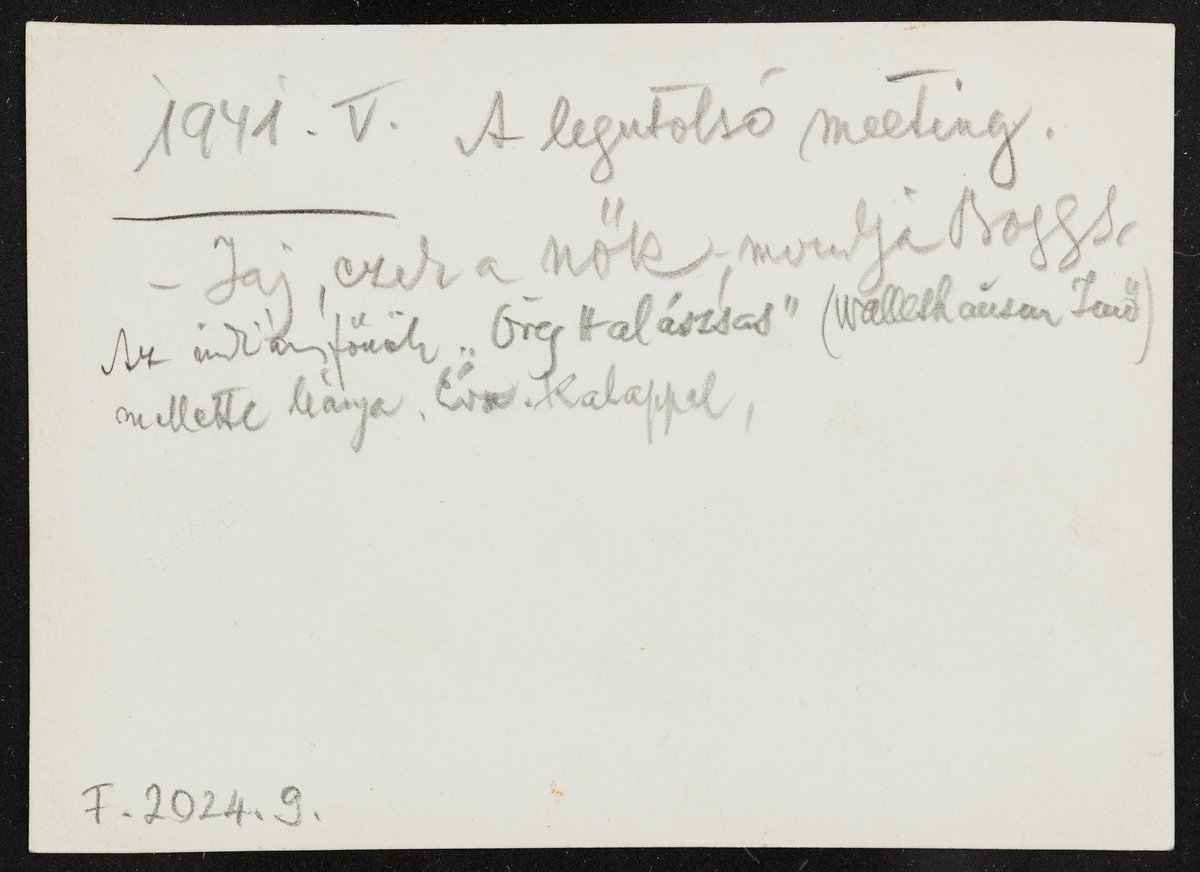 1941. V. A legutolsó meeting.
- Jaj, ezek a nők -, mondja Boggs.
Az indiánfőnök „Öreg Halászsas" (Walleshausen Jenő)
mellette leánya. Éva. Kalappal,
F. 2024. 9.